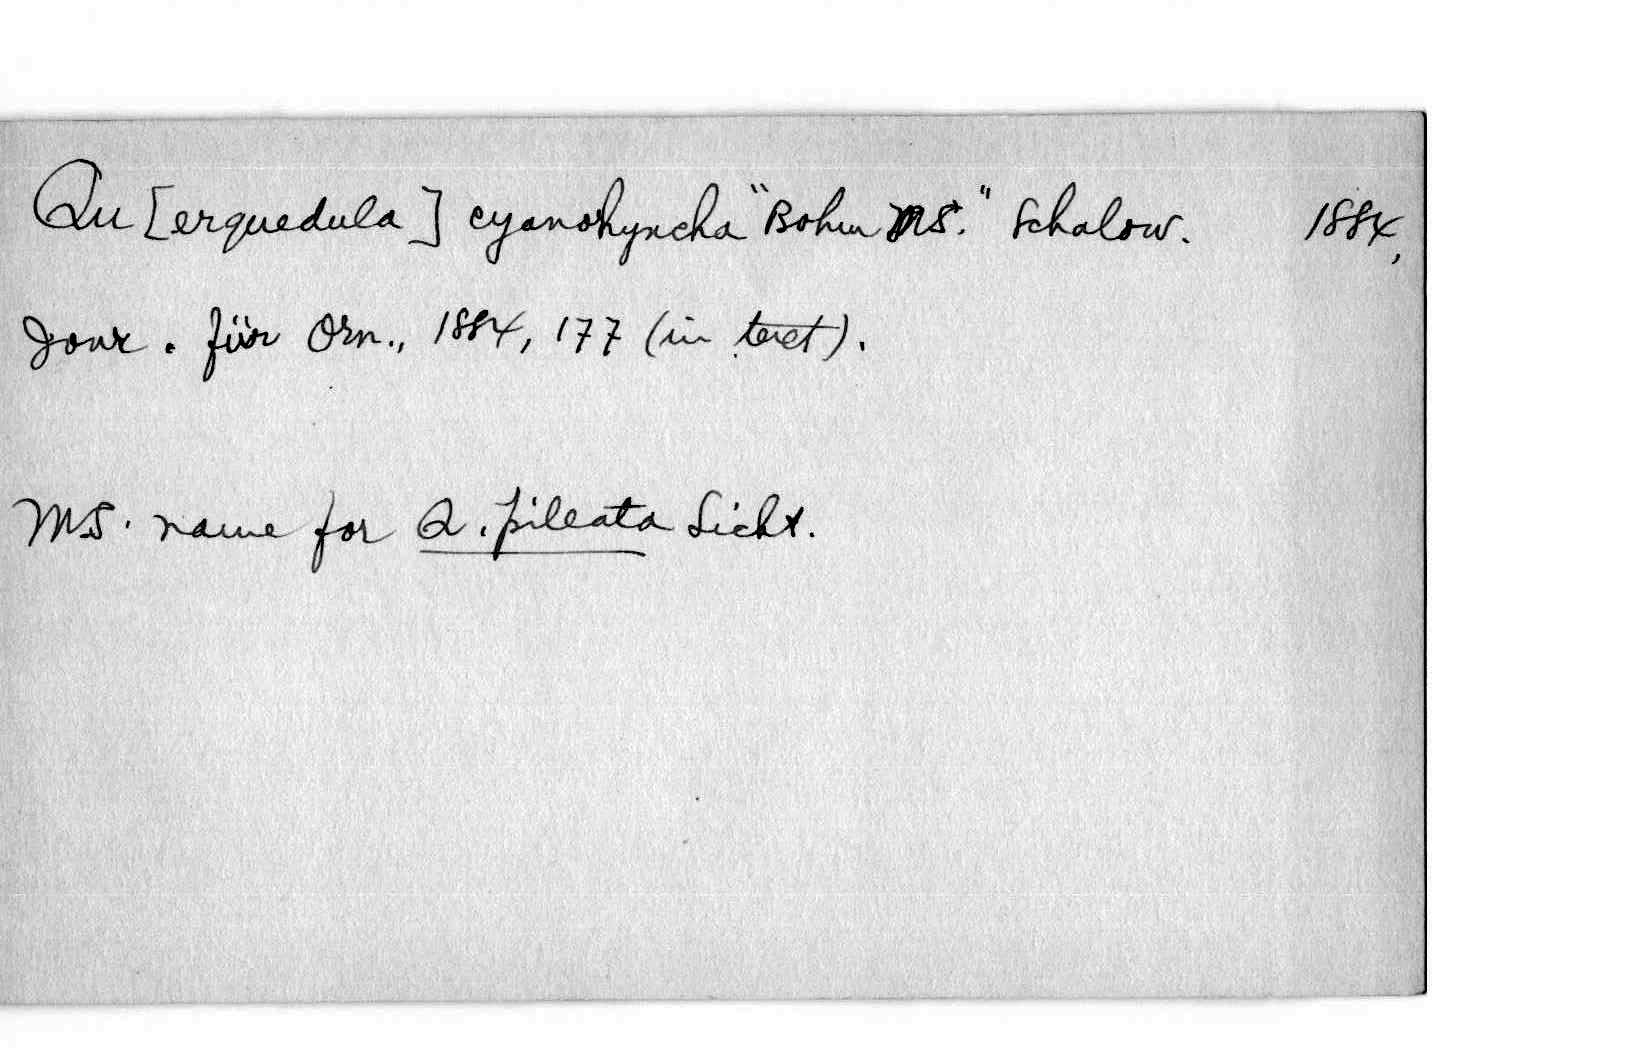 Qu[erquedula] cyanorhyncha "Bohm MS." Schalow. 1884,
Jour. für Orn., 1884, 177 (in text).
MS. name for Q. pileata Licht.